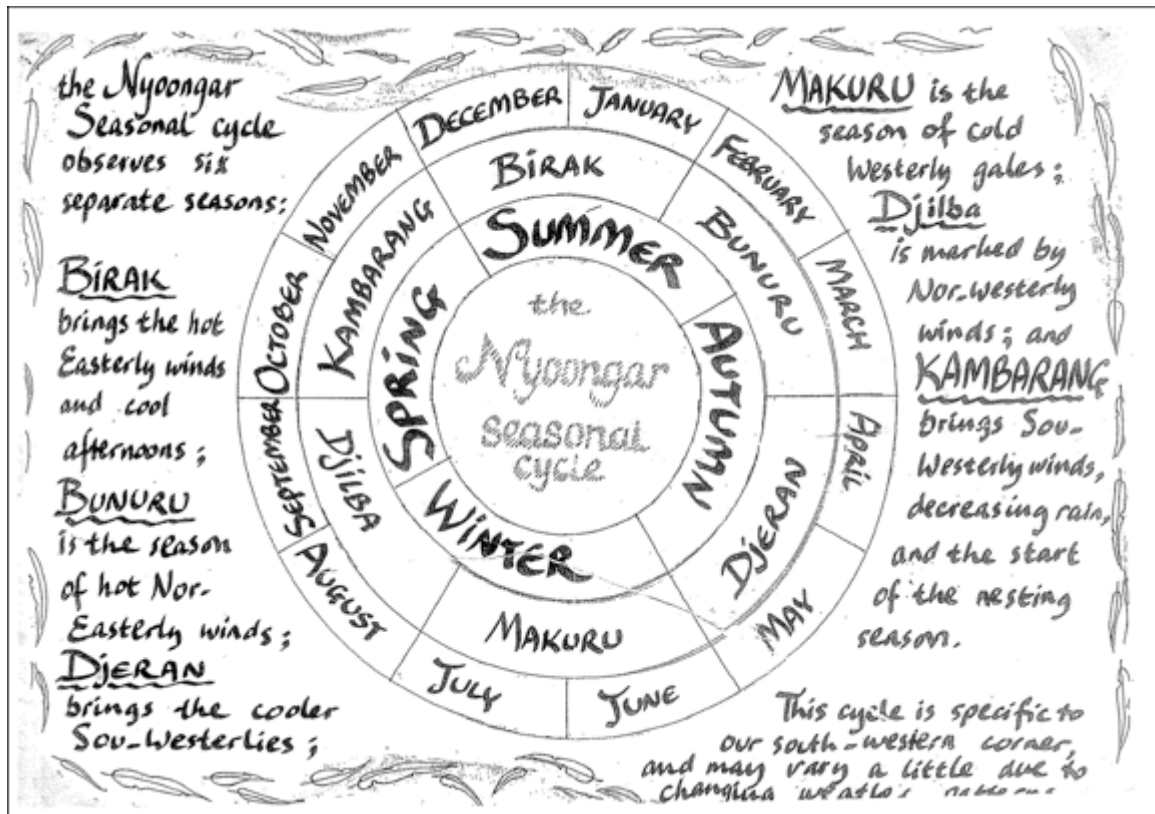 the Nyoongar
Seasonal cycle
observes six
separate seasons;
BIRAK
brings the hot
Easterly winds
and cool
afternoons;
BUNURU
is the season
of hot Nor-
Easterly winds;
DJERAN
brings the cooler
Sou-Westerlies;
DECEMBER
JANUARY
FEBRUARY
MARCH
APRIL
MAY
JUNE
JULY
AUGUST
SEPTEMBER
OCTOBER
NOVEMBER
BIRAK
BUNURU
DJERAN
MAKURU
DJILBA
KAMBARANG
SUMMER
AUTUMN
WINTER
SPRING
the
Nyoongar
seasonal
cycle
MAKURU is the
season of cold
Westerly gales;
Djilba
is marked by
Nor-Westerly
winds; and
KAMBARANG
brings Sou-
Westerly winds,
decreasing rain,
and the start
of the nesting
season.
This cycle is specific to
our south-western corner,
and may vary a little due to
changing weather patterns